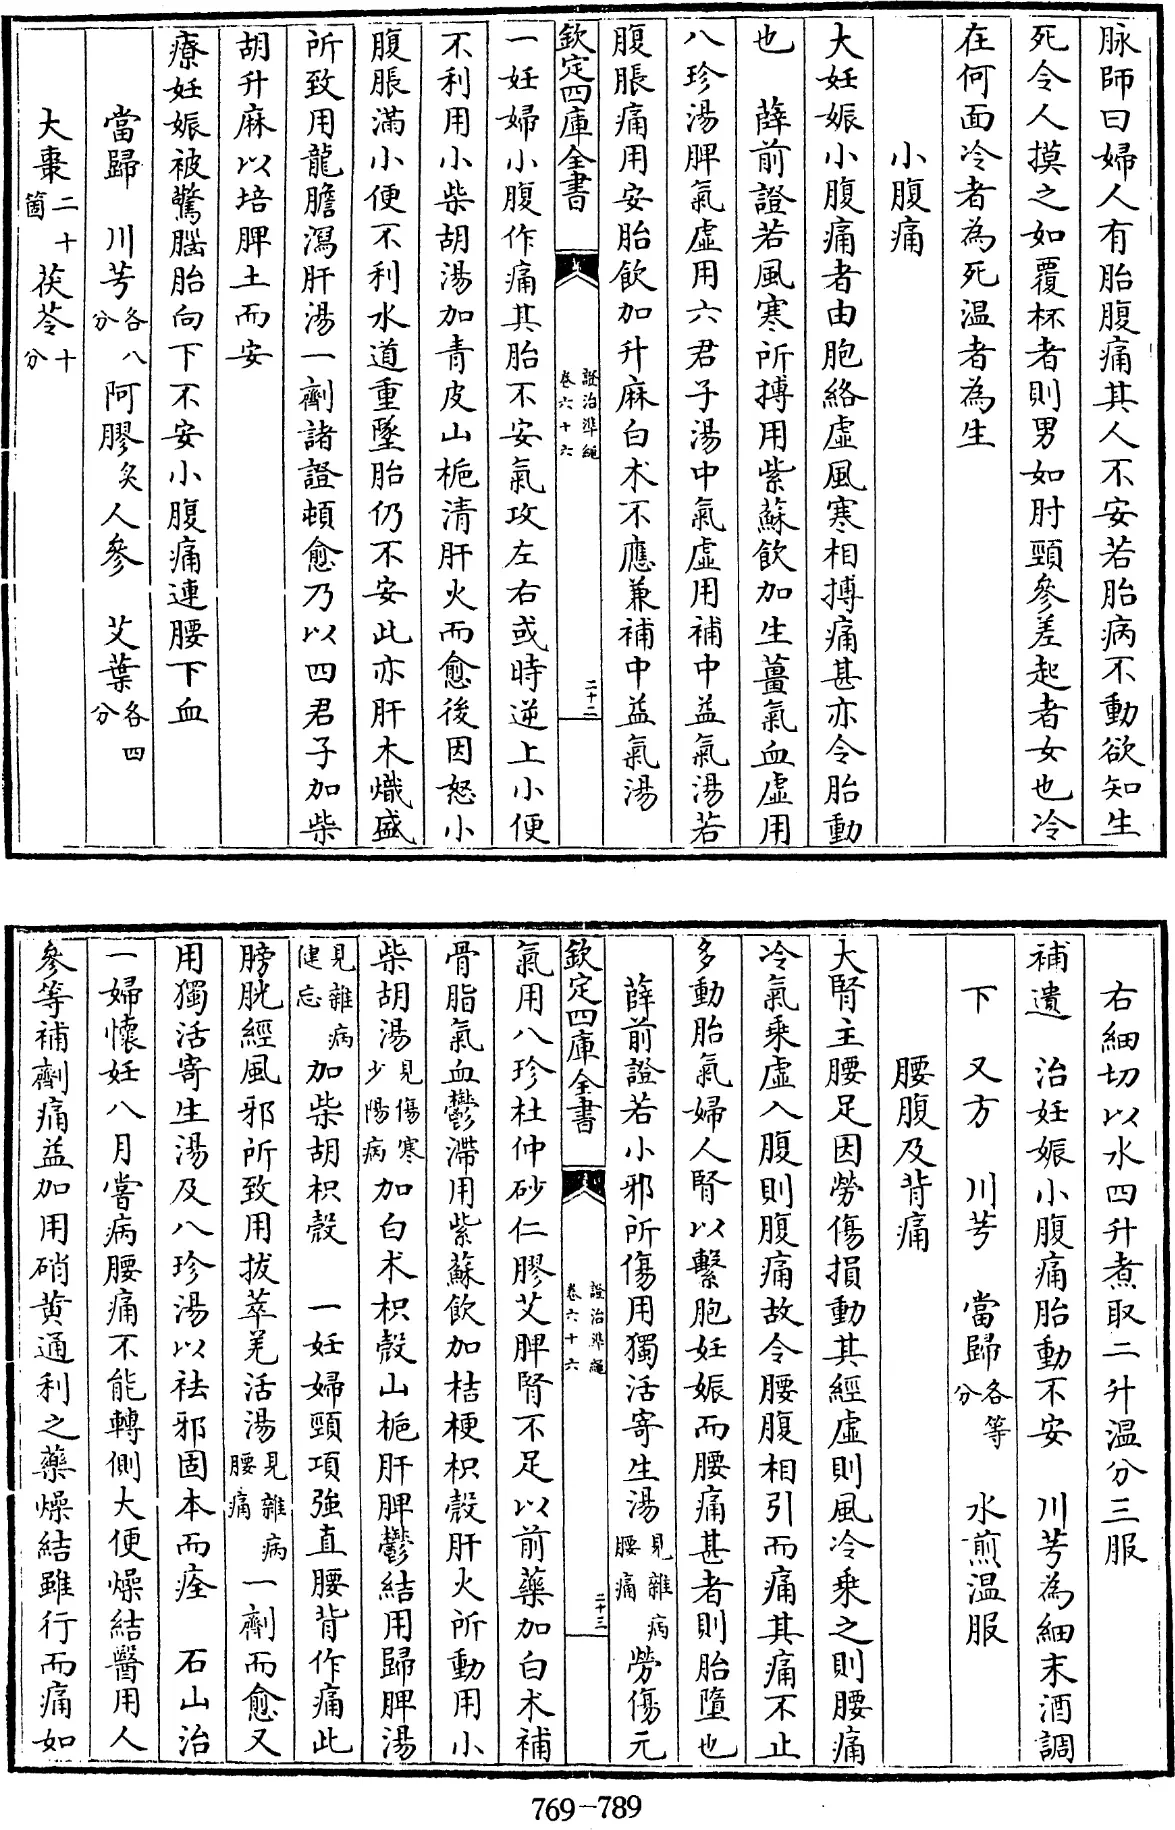 脉師曰婦人有胎腹痛其人不安若胎病不動欲知生
死令人摸之如覆杯者則男如肘頸參差起者女也冷
在何面冷者為死温者為生
小腹痛
大妊娠小腹痛者由胞絡虛風寒相搏痛甚亦令胎動
也　薛前證若風寒所搏用紫蘇飲加生薑氣血虛用
八珍湯脾氣虛用六君子湯中氣虛用補中益氣湯若
腹脹痛用安胎飲加升麻白术不應兼補中益氣湯
欽定四庫全書
證治準繩
卷六十六
二十二
一妊婦小腹作痛其胎不安氣攻左右或時逆上小便
不利用小柴胡湯加青皮山梔清肝火而愈後因怒小
腹脹滿小便不利水道重墜胎仍不安此亦肝木熾盛
所致用龍膽瀉肝湯一劑諸證頓愈乃以四君子加柴
胡升麻以培脾土而安
療妊娠被驚腦胎向下不安小腹痛連腰下血
當歸　川芎各八分阿膠炙人參　艾葉各四分
大棗二十箇茯苓十分
右細切以水四升煮取二升温分三服
補遺　治妊娠小腹痛胎動不安　川芎為細末酒調
下　又方　川芎　當歸各等分　水煎温服
腰腹及背痛
大腎主腰足因勞傷損動其經虛則風冷乘之則腰痛
冷氣乘虛入腹則腹痛故令腰腹相引而痛其痛不止
多動胎氣婦人腎以繫胞妊娠而腰痛甚者則胎墮也
薛前證若小邪所傷用獨活寄生湯見雜病腰痛勞傷元
欽定四庫全書
證治準繩
卷六十六
二十三
氣用八珍杜仲砂仁膠艾脾腎不足以前藥加白术補
骨脂氣血鬱滯用紫蘇飲加桔梗枳殼肝火所動用小
柴胡湯見傷寒少陽病加白术枳殼山梔肝脾鬱結用歸脾湯
見雜病健忘加柴胡枳殼　一妊婦頸項強直腰背作痛此
膀胱經風邪所致用拔萃羌活湯見雜病腰痛一劑而愈又
用獨活寄生湯及八珍湯以祛邪固本而痊　石山治
一婦懷妊八月嘗病腰痛不能轉側大便燥結醫用人
參等補劑痛益加用硝黃通利之藥燥結雖行而痛如
769-789